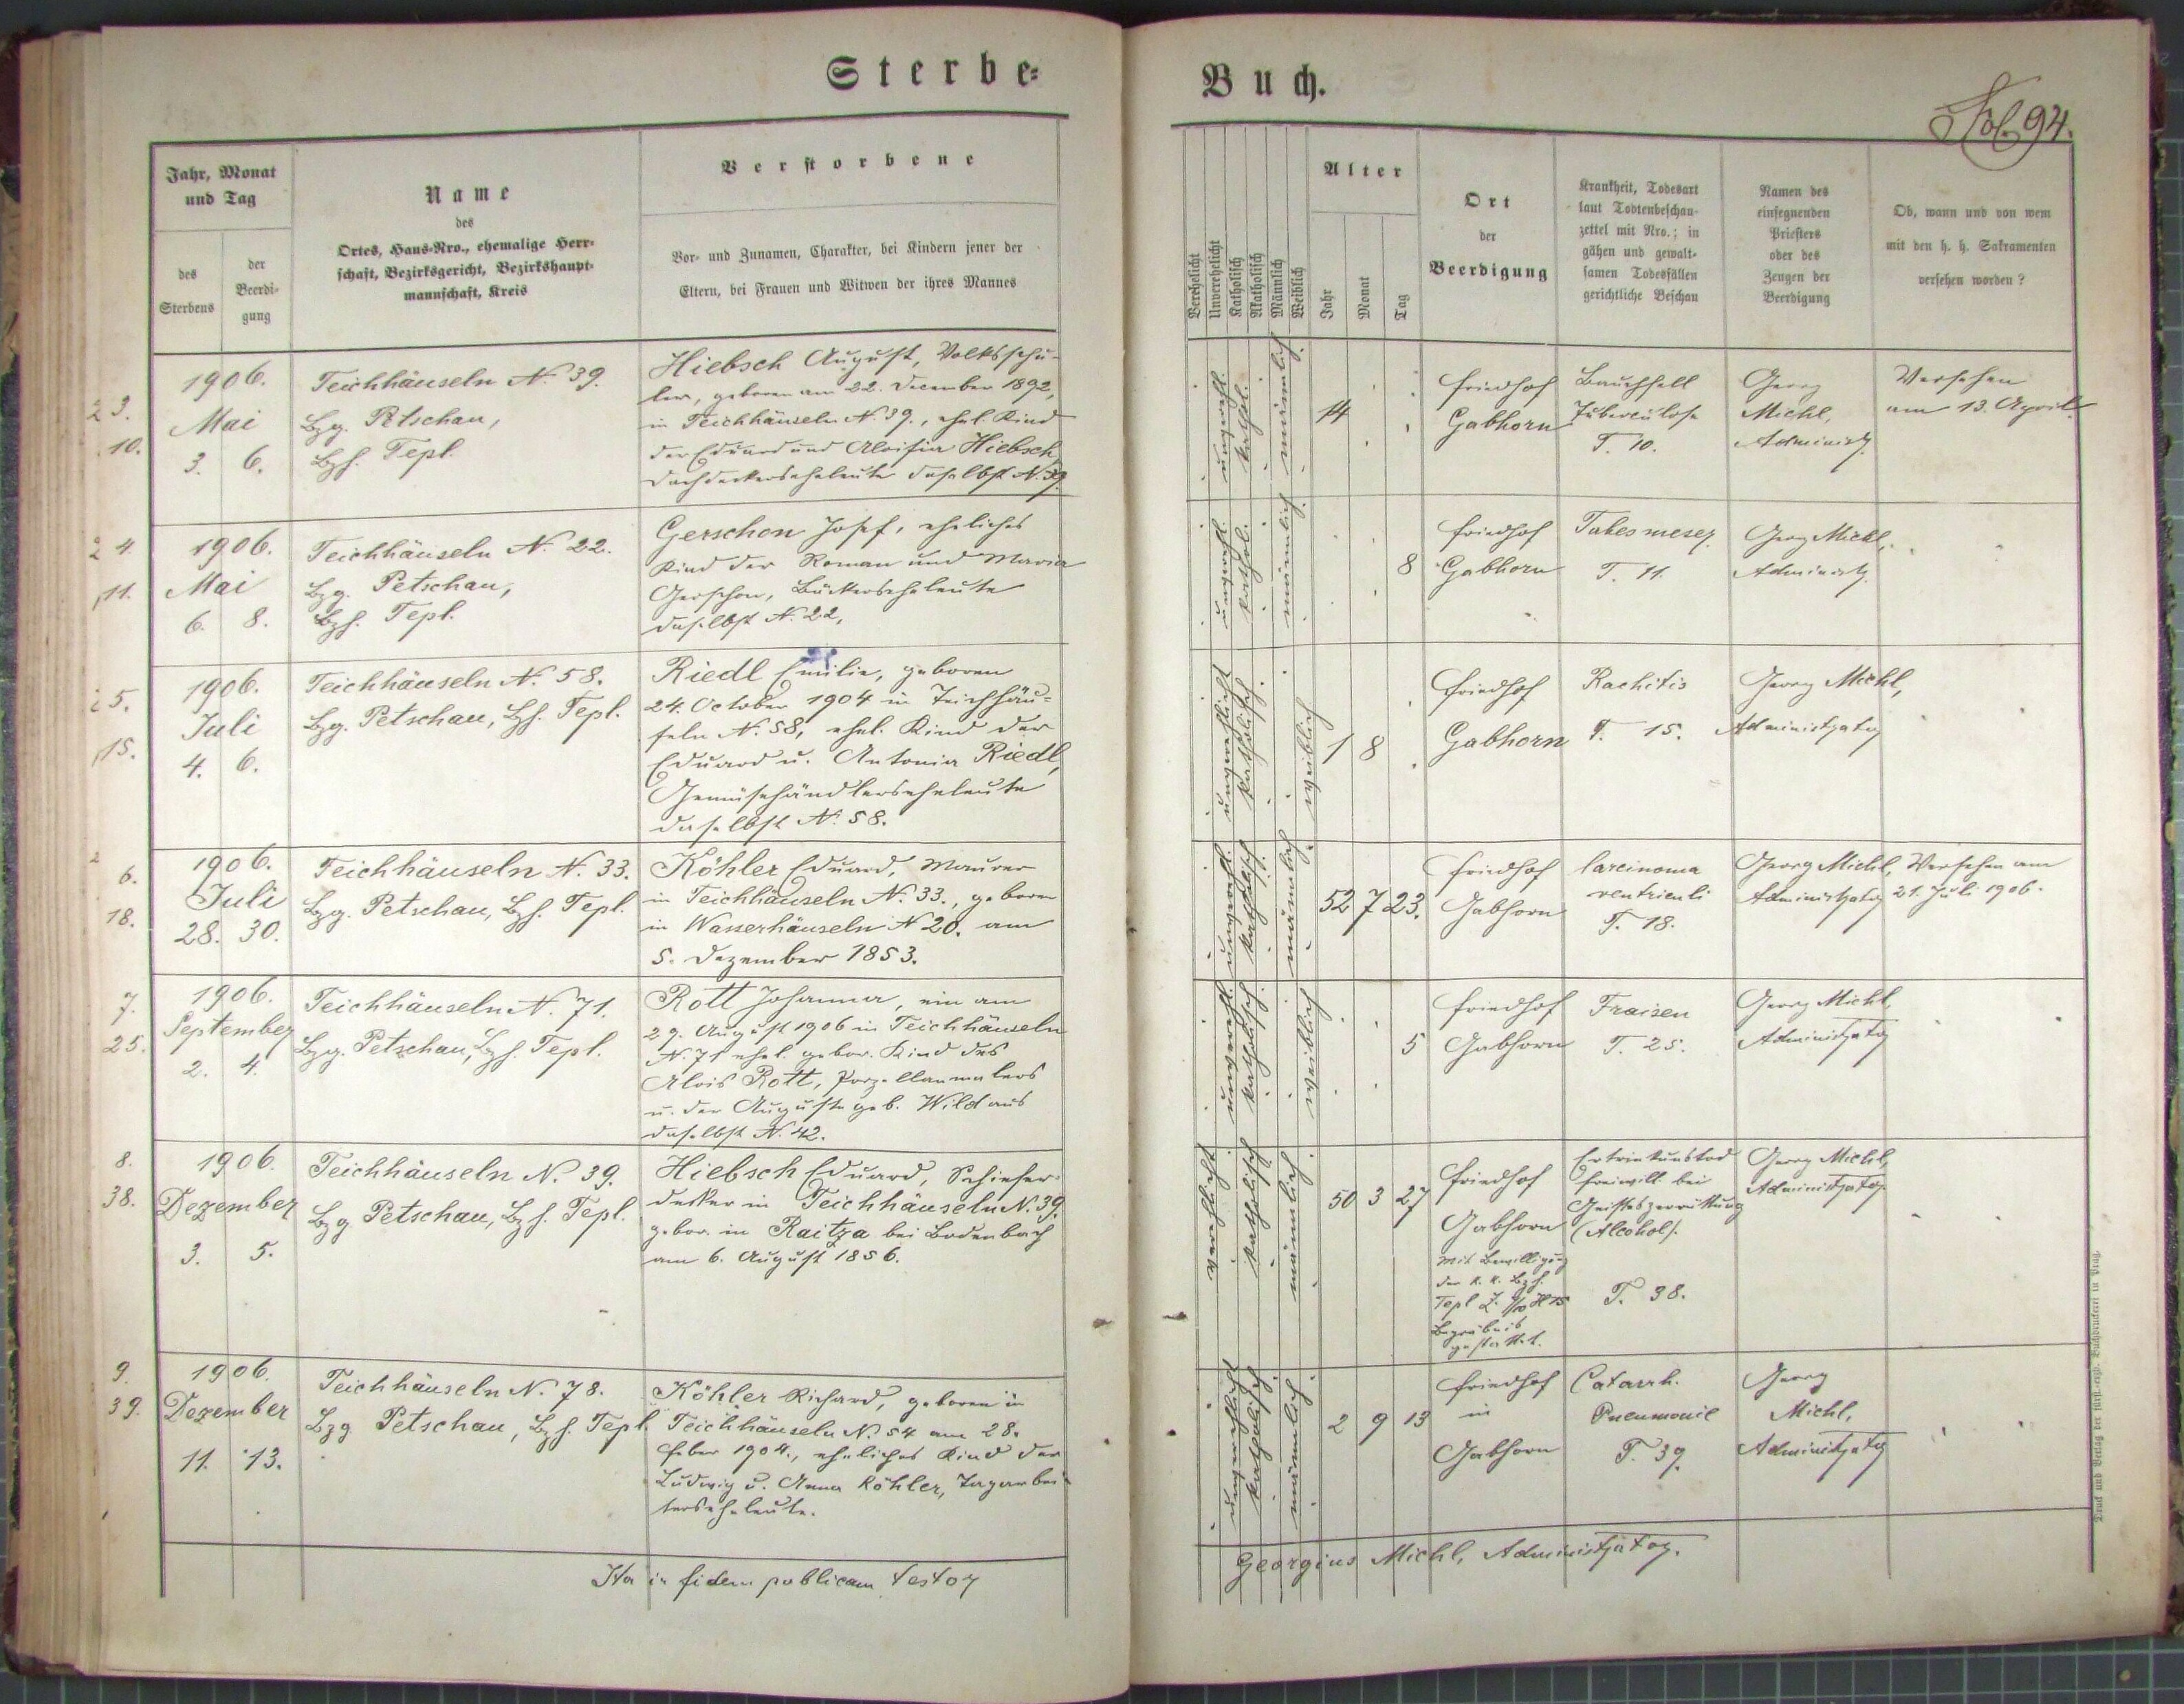 Sterbe-
Buch.
Fol. 94.
Jahr, Monat
und Tag
des
Sterbens
der
Beerdi-
gung
Name
des
Ortes, Haus-Nro., ehemalige Herr-
schaft, Bezirksgericht, Bezirkshaupt-
mannschaft, Kreis
Verstorbene
Vor- und Zunamen, Charakter, bei Kindern jener der
Eltern, bei Frauen und Witwen der ihres Mannes
Verehelicht
Unverehelicht
Katholisch
Akatholisch
Männlich
Weiblich
Alter
Jahr
Monat
Tag
Ort
der
Beerdigung
Krankheit, Todesart
laut Todtenbeschau-
zettel mit Nro.; in
gähen und gewalt-
samen Todesfällen
gerichtliche Beschau
Namen des
einsegnenden
Priesters
oder des
Zeugen der
Beerdigung
Ob, wann und von wem
mit den h. h. Sakramenten
versehen worden?
23.
10.
1906.
Mai
3. 6.
Teichhäuseln N. 39.
Bzg. Petschau,
Bzh. Tepl.
Hiebsch August, Volksschü-
ler, geboren am 22. December 1892,
in Teichhäuseln N. 39., ehel. Kind
der Eduard und Aloisia Hiebsch,
Dachdeckerseheleute daselbst N. 39.
unverehl.
kathol.
männlich
14
Friedhof
Gabhorn
Bauchfell
Tuberculose
T. 10.
Georg
Michl,
Administr.
Versehen
am 13. April
24.
11.
1906.
Mai
6. 8.
Teichhäuseln N. 22.
Bzg. Petschau,
Bzh. Tepl.
Gerschon Josef, eheliches
Kind der Roman und Maria
Gerschon, Bäckerseheleute
daselbst N. 22,
unverehl.
kathol.
männlich
8
Friedhof
Gabhorn
Tabes meser.
T. 11.
Georg Michl,
Administr.
25.
15.
1906.
Juli
4. 6.
Teichhäuseln N. 58.
Bzg. Petschau, Bzh. Tepl.
Riedl Emilie, geboren
24. October 1904 in Teichhäu-
seln N. 58, ehel. Kind der
Eduard u. Antonia Riedl,
Gemüsehändlerseheleute
daselbst N. 58.
unverehlicht
katholisch
weiblich
1 8
Friedhof
Gabhorn
Rachitis
T. 15.
Georg Michl,
Administrator
26.
18.
1906.
Juli
28. 30.
Teichhäuseln N. 33.
Bzg. Petschau, Bzh. Tepl.
Köhler Eduard, Maurer
in Teichhäuseln N. 33., geboren
in Wasserhäuseln N 20. am
5. Dezember 1853.
unverehl.
katholisch
männlich
52 7 23.
Friedhof
Gabhorn
Carcinoma
ventriculi
T. 18.
Georg Michl,
Administrator
Versehen am
21. Juli 1906.
7.
25.
1906.
September
2. 4.
Teichhäuseln N. 71.
Bzg. Petschau, Bzh. Tepl.
Rott Johanna, ein am
29. August 1906 in Teichhäuseln
N. 71 ehel. gebor. Kind des
Alois Rott, Porzellanmalers
u. der Auguste geb. Wild aus
daselbst N. 42.
unverehl.
katholisch
weiblich
5
Friedhof
Gabhorn
Fraisen
T. 25.
Georg Michl,
Administrator
8.
38.
1906.
Dezember
3. 5.
Teichhäuseln N. 39.
Bzg. Petschau, Bzh. Tepl.
Hiebsch Eduard, Schiefer-
decker in Teichhäuseln N. 39,
gebor. in Raitza bei Bodenbach
am 6. August 1856.
verehlicht
katholisch
männlich
50 3 27
Friedhof
Gabhorn
Mit Bewilligung
der k. k. Bzh.
Tepl
Begräbnis
gestattet.
Ertrinkunstod
freiwill. bei
Geisteszerrüttung
(Alcohol).
T. 38.
Georg Michl,
Administrator
9.
39.
1906.
Dezember
11. 13.
Teichhäuseln N. 78.
Bzg. Petschau, Bzh. Tepl.
Köhler Richard, geboren in
Teichhäuseln N. 54 am 28.
Feber 1904., eheliches Kind der
Ludwig u. Anna Köhler, Tagarbei-
terseheleute.
unverehlicht
katholisch
männlich
2 9 13
Friedhof
in
Gabhorn
Catarrh.
Pneumonie
T. 39.
Georg
Michl,
Administrator
Ita in fidem publicam testor
Georgius Michl, Administrator.
Druck und Verlag der fürst-erzb. Buchdruckerei in Prag.